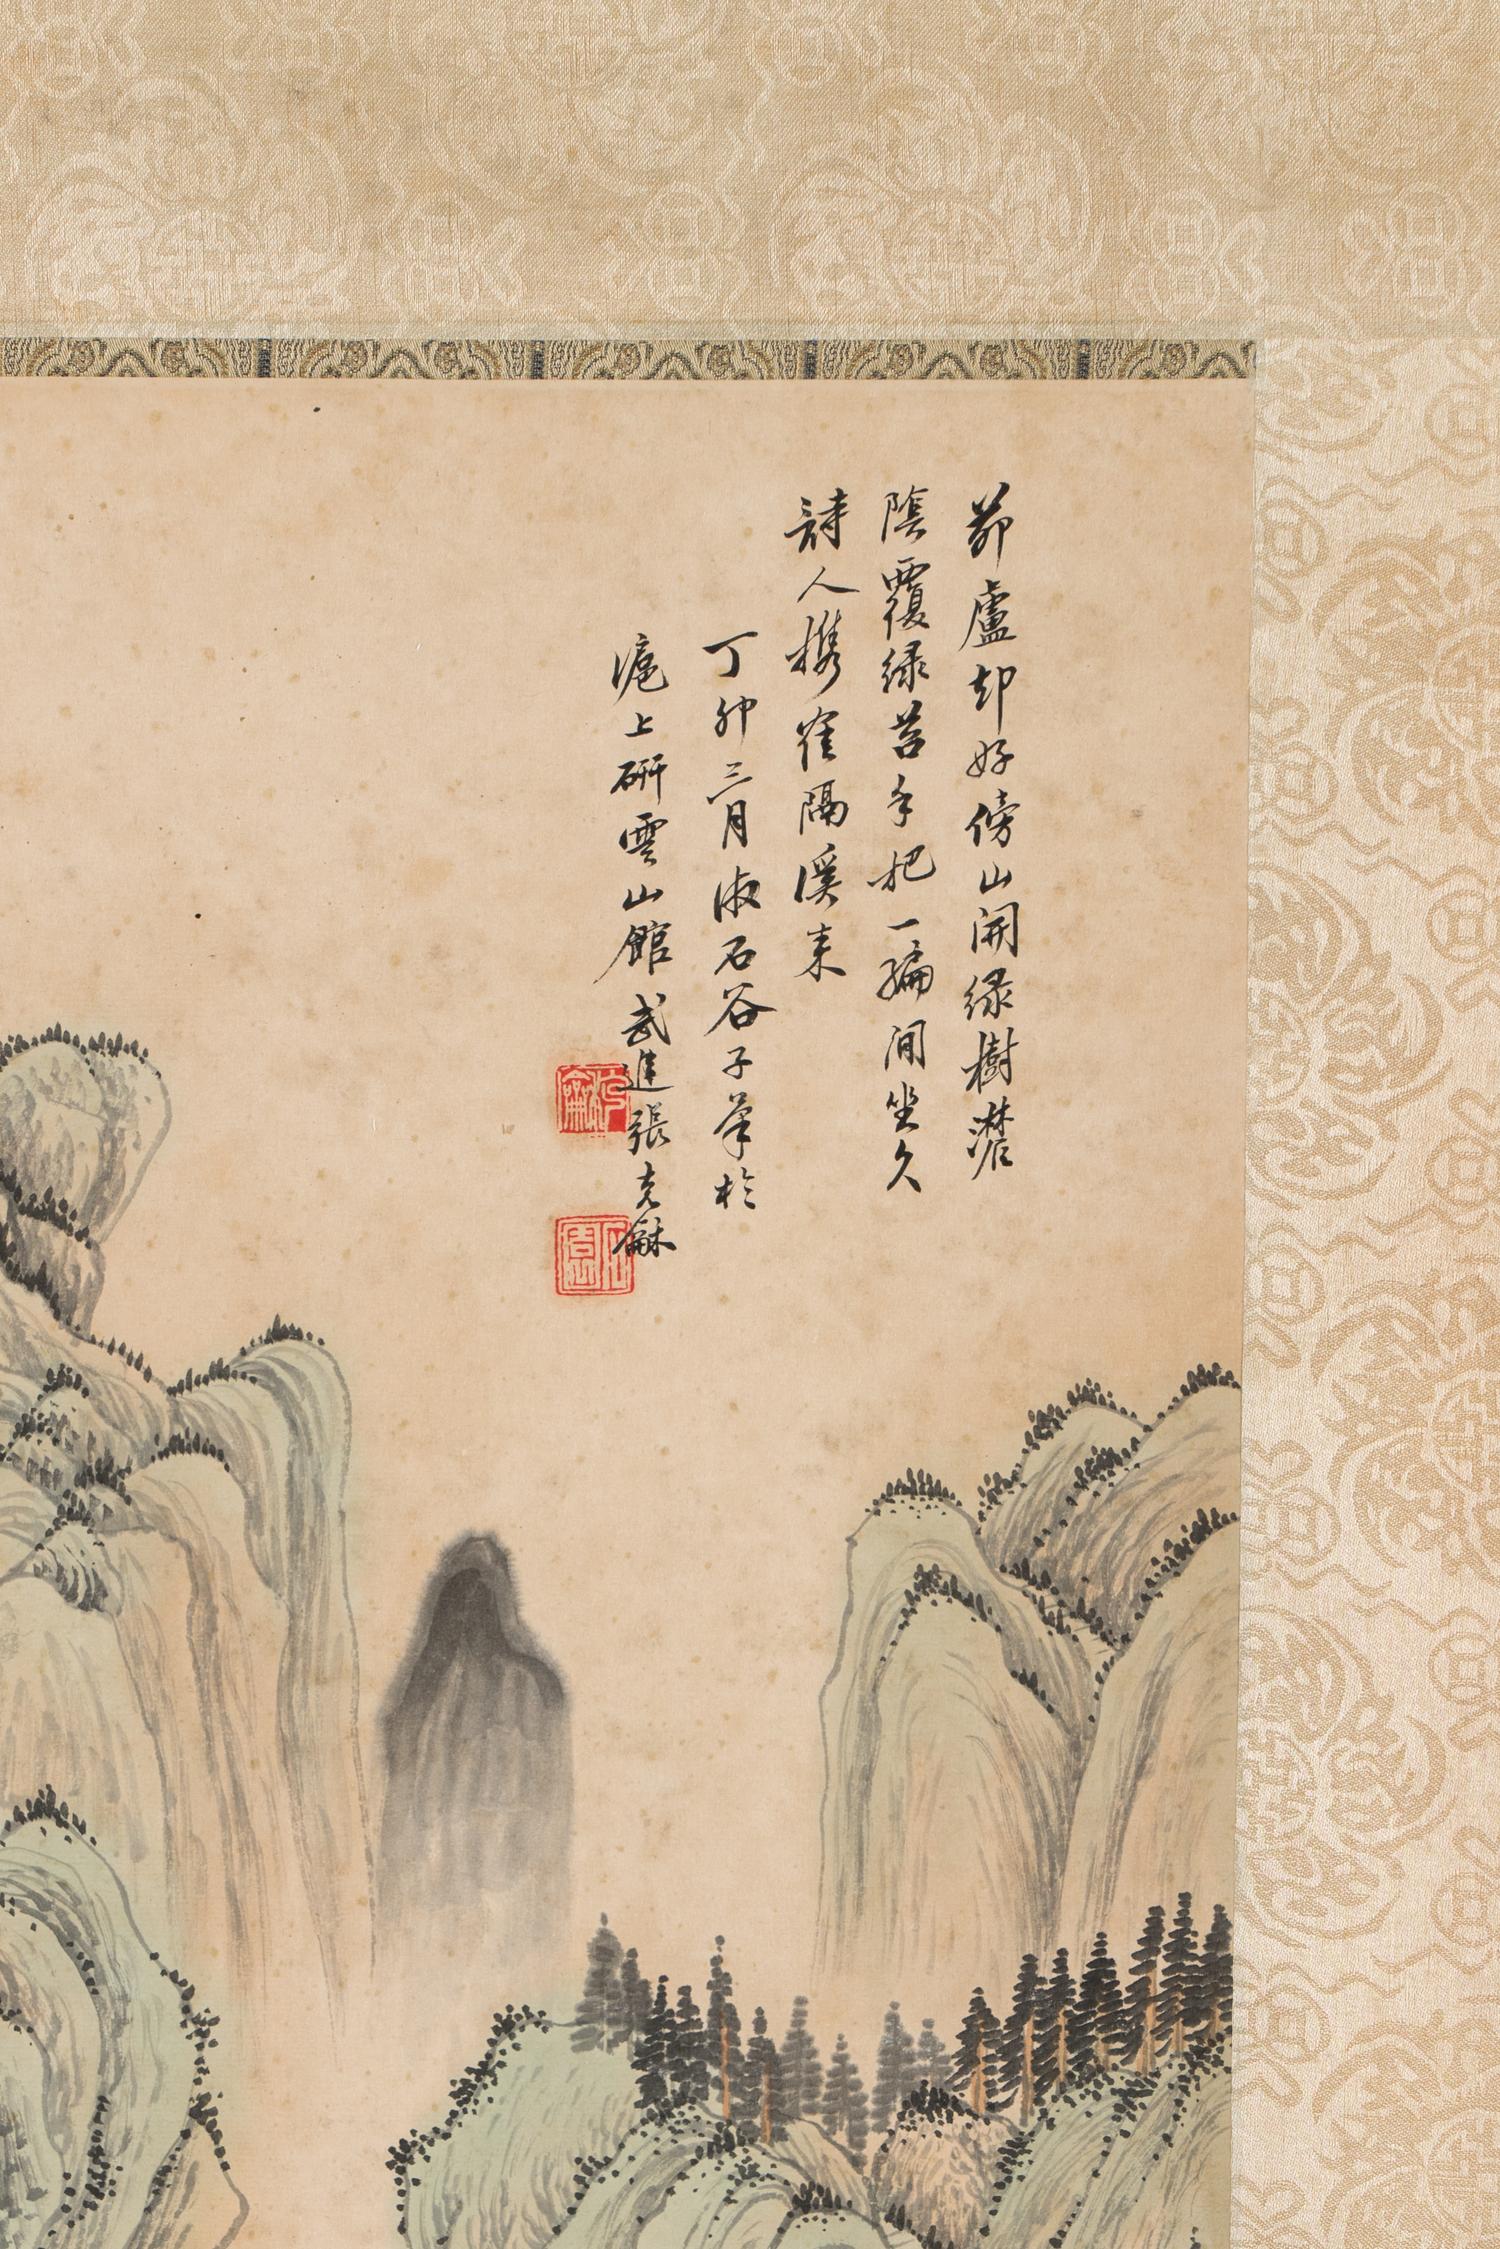 茆廬却好傍山開綠樹濃
陰覆綠苔手把一編閒坐久
詩人携隺隔溪来
丁卯三月淑石谷子筆於
滬上硏雲山館武進張克龢